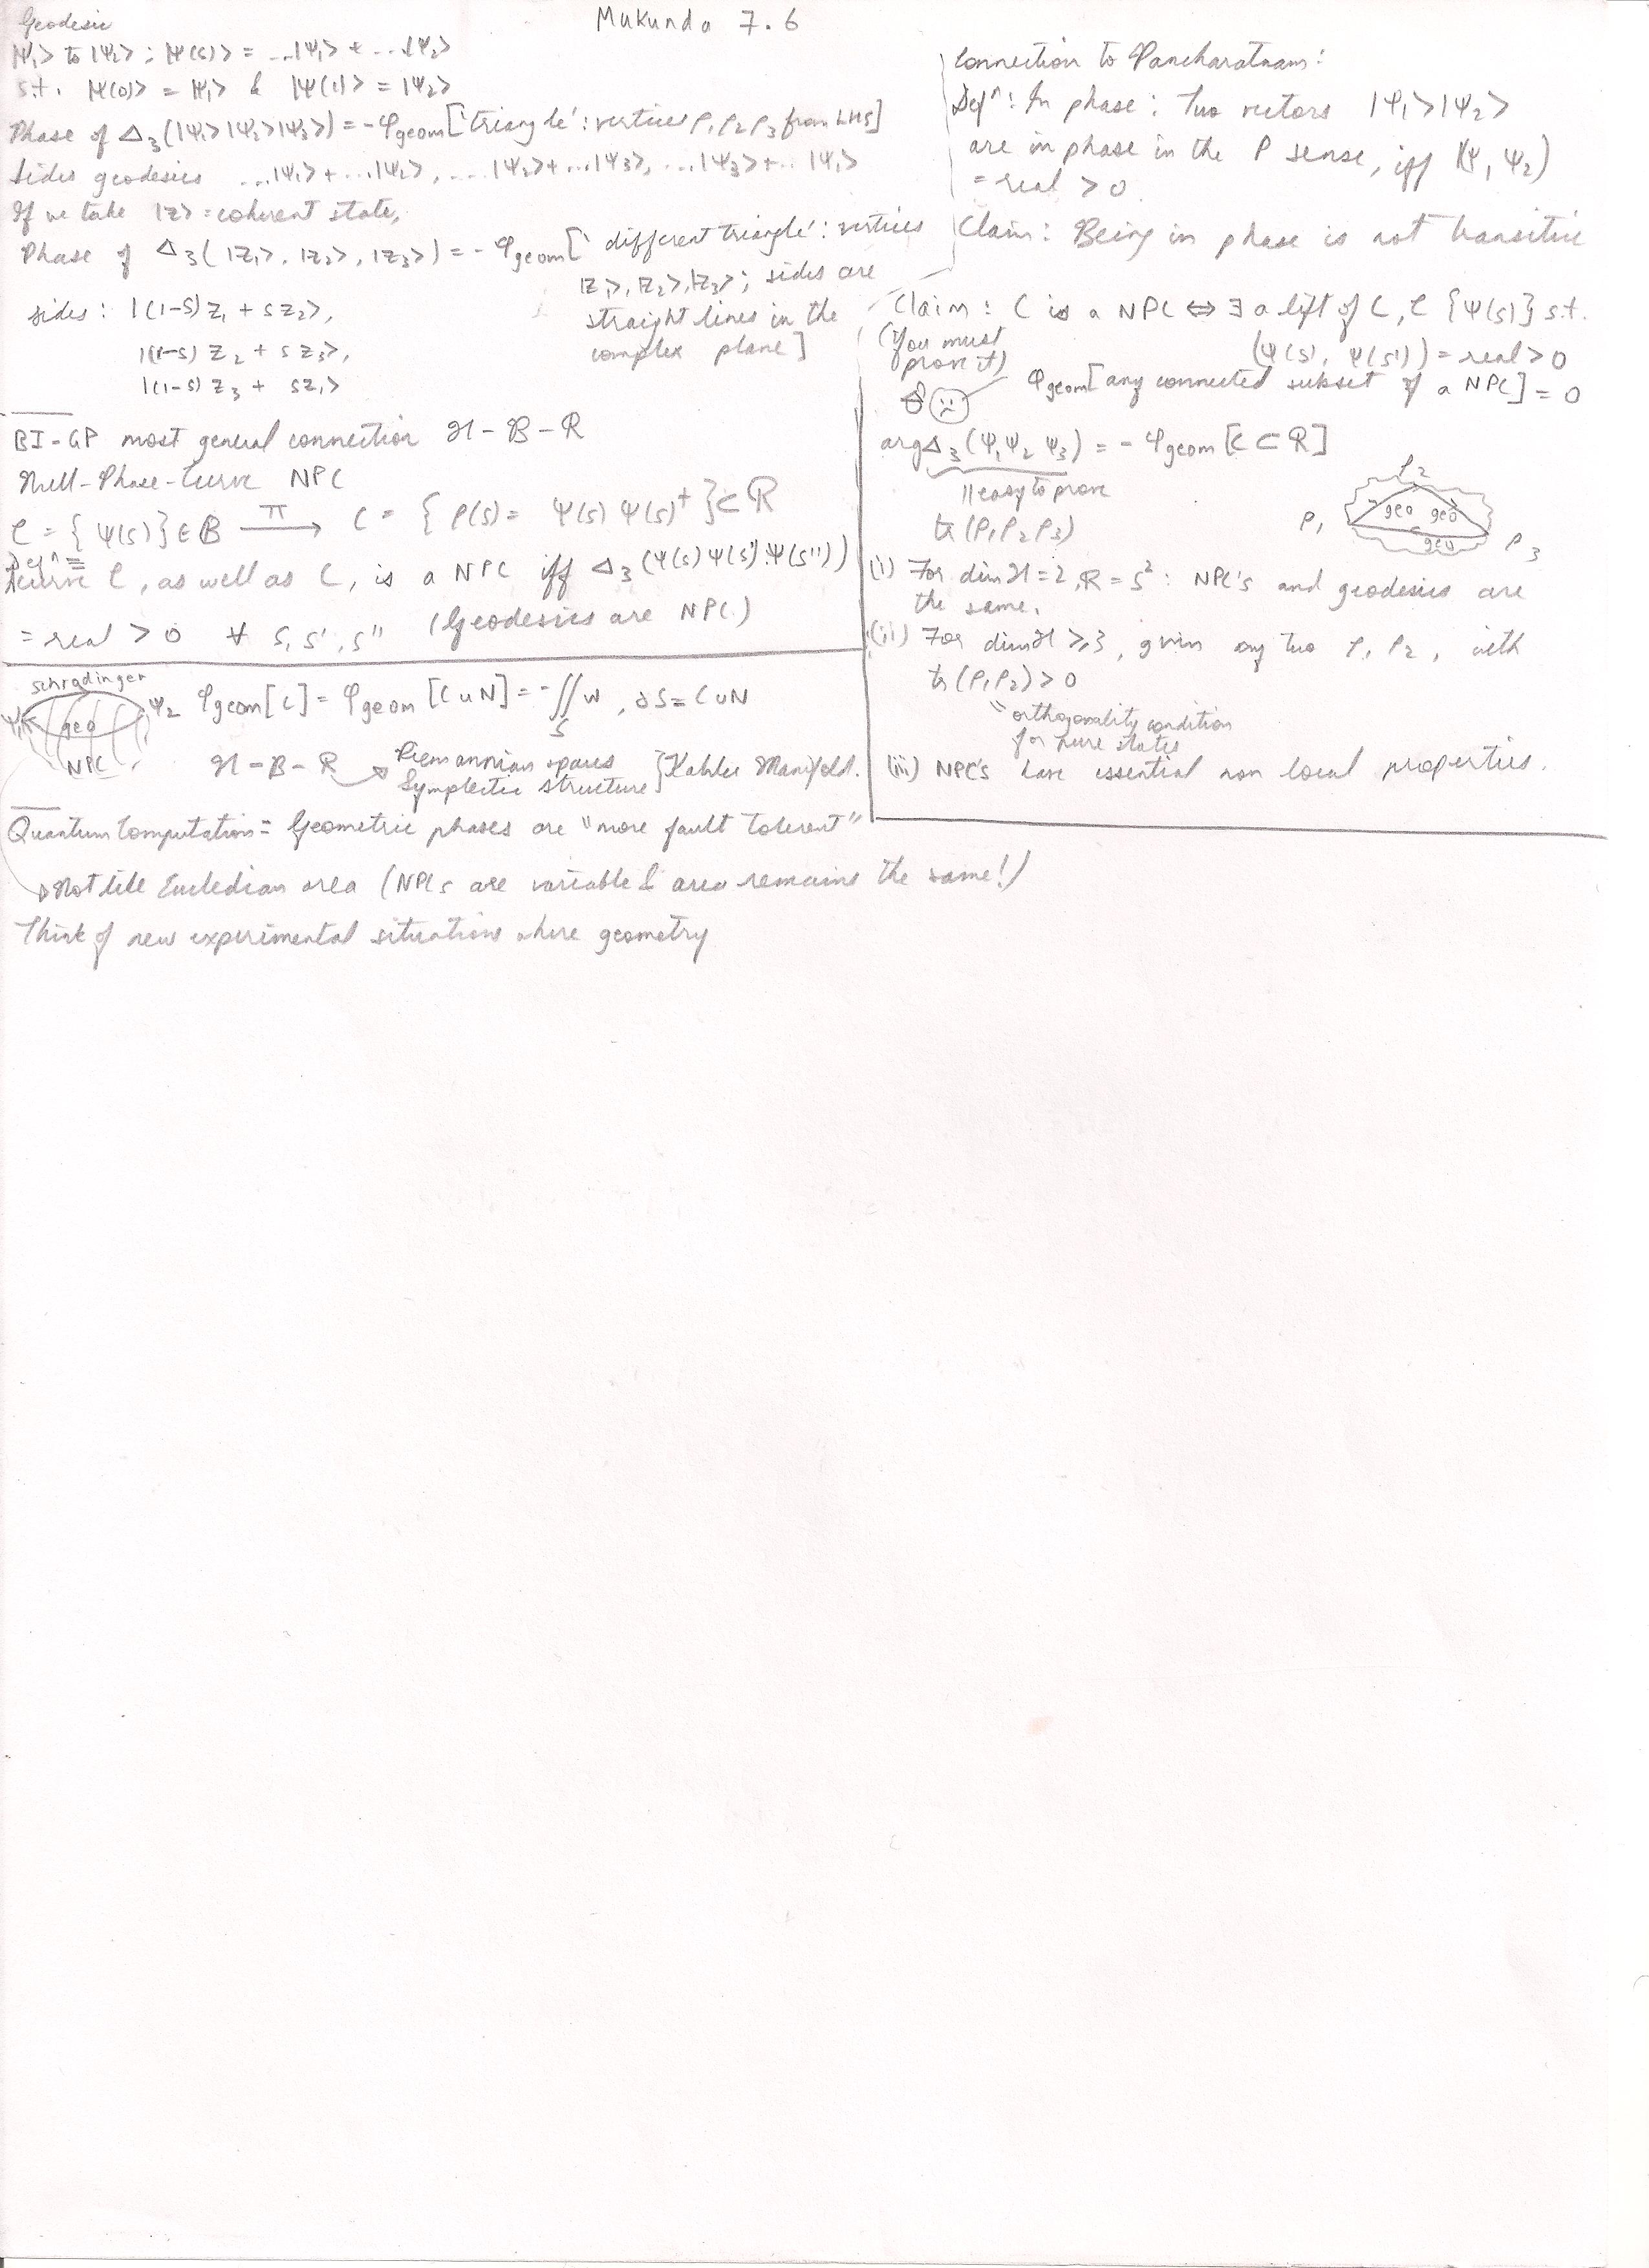 Mukunda 7.6
Geodesic
|Ψ₁> to |Ψ₂> ; |Ψ(s)> = ...|Ψ₁> + ...|Ψ₂>
s.t. |Ψ(0)> = |Ψ₁> & |Ψ(1)> = |Ψ₂>
Phase of Δ₃(|Ψ₁>|Ψ₂>|Ψ₃>) = -φgeom['triangle': vertices ρ₁ρ₂ρ₃ from LHS]
sides geodesics ...|Ψ₁>+...|Ψ₂>, ...|Ψ₂>+...|Ψ₃>, ...|Ψ₃>+...|Ψ₁>
If we take |z> = coherent state,
Phase of Δ₃(|z₁>, |z₂>, |z₃>) = -φgeom[' different triangle': vertices
|z₁>, |z₂>, |z₃>; sides are
straight lines in the
complex plane]
sides: |(1-s)z₁ + sz₂>,
|(1-s)z₂ + sz₃>,
|(1-s)z₃ + sz₁>
BI-GP most general connection ℋ-ℬ-ℛ
Null-Phase-Curve NPC
𝒞 = {Ψ(s)} ∈ ℬ —π→ C = {ρ(s) = Ψ(s)Ψ(s)†} ⊂ ℛ
Defⁿ ≡
Acurve 𝒞, as well as C, is a NPC iff Δ₃(Ψ(s)Ψ(s')Ψ(s''))
= real > 0 ∀ s, s', s'' (Geodesics are NPC.)
schrodinger
Ψ₁ geo Ψ₂
NPC
φgeom[C] = φgeom[C∪N] = -∬ω, ∂S = C∪N
S
ℋ-ℬ-ℛ → Riemannian spaces
Symplectic structure } Kahler Manifold.
Quantum Computation = Geometric phases are "more fault tolerent"
→ Not like Eucledian area (NPCs are variable & area remains the same!)
Think of new experimental situations where geometry
Connection to Pancharatnam:
Defⁿ: In phase: Two vectors |Ψ₁>|Ψ₂>
are in phase in the P sense, iff (Ψ₁, Ψ₂)
= real > 0.
Claim: Being in phase is not transitive
Claim: C is a NPC ⇔ ∃ a lift of C, 𝒞 {Ψ(s)} s.t.
(You must
prove it)
(Ψ(s), Ψ(s')) = real > 0
φgeom[any connected subset of a NPC] = 0
argΔ₃(Ψ₁Ψ₂Ψ₃) = -φgeom[C ⊂ ℛ]
|| easy to prove
tr(ρ₁ρ₂ρ₃)
ρ₂
geo geo
ρ₁ geo ρ₃
(i) For dimℋ=2, ℛ = S²: NPC's and geodesics are
the same.
(ii) For dimℋ ≥ 3, given any two ρ₁ ρ₂, with
tr(ρ₁ρ₂) > 0
"orthogonality condition
for pure states
(iii) NPC's have essential non local properties.